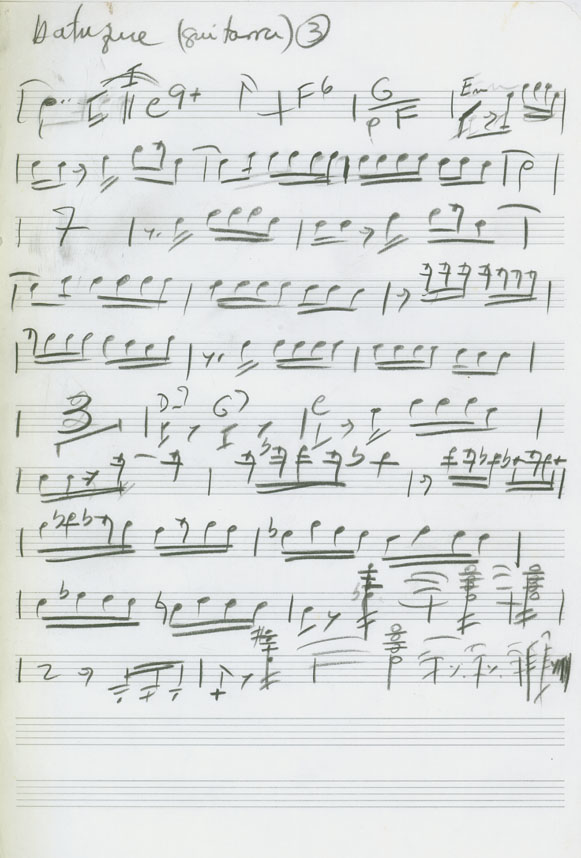 Batuque (guitarra) 3
C 9+ F6 G F Em
7
3 D-7 G7 C
2